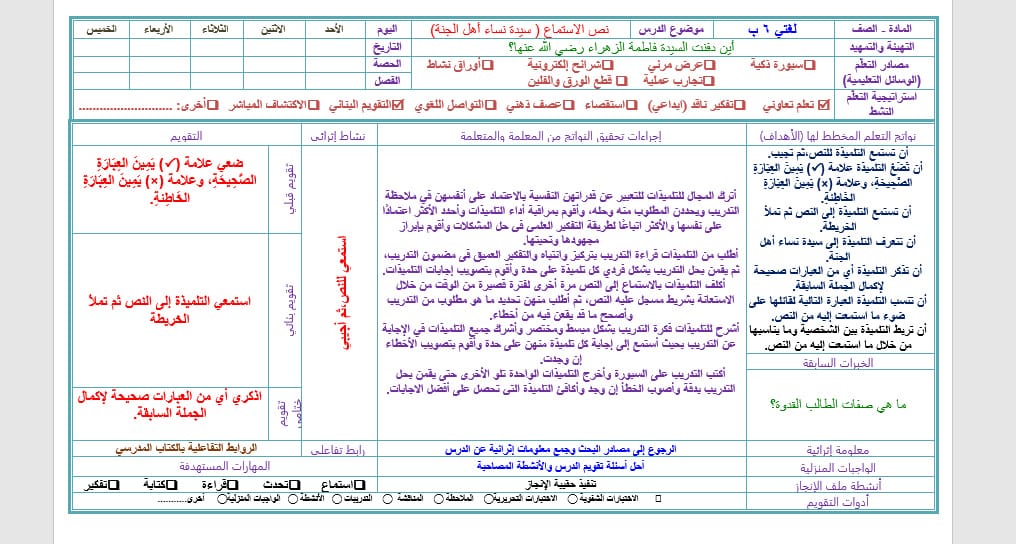 المادة – الصف
لغتي ٦ ب
موضوع الدرس
نص الاستماع ( سيدة نساء أهل الجنة)
اليوم
الأحد
الاثنين
الثلاثاء
الأربعاء
الخميس
التهيئة والتمهيد
أين دفنت السيدة فاطمة الزهراء رضي الله عنها؟
التاريخ
مصادر التعلّم
(الوسائل التعليمية)
سبورة ذكية
عرض مرئي
شرائح إلكترونية
أوراق نشاط
تجارب عملية
قطع الورق والفلين
الحصة
الفصل
استراتيجية التعلّم
النشط
تعلم تعاوني
تفكير ناقد (ابداعي)
استقصاء
عصف ذهني
التواصل اللغوي
التقويم البنائي
الاكتشاف المباشر
أخرى: ..........................
نواتج التعلم المخطط لها (الأهداف)
إجراءات تحقيق النواتج من المعلمة والمتعلمة
نشاط إثرائي
التقويم
أن تستمع التلميذة للنص،ثم تجيب.
أن تَضَعُ التلميذة علامة (✓) يَمِينَ العِبَارَةِ
الصَّحِيحَةِ، وعلامة (×) يَمِينَ العِبَارَةِ
الخَاطِئَةِ.
أن تستمع التلميذة إلى النص ثم تملأ
الخريطة.
أن تتعرف التلميذة إلى سيدة نساء أهل
الجنة.
أن تذكر التلميذة أي من العبارات صحيحة
لإكمال الجملة السابقة.
أن تنسب التلميذة العبارة التالية لقائلها على
ضوء ما استمعت إليه من النص.
أن تربط التلميذة بين الشخصية وما يناسبها
من خلال ما استمعت إليه من النص.
الخبرات السابقة
ما هي صفات الطالب القدوة؟
أترك المجال للتلميذات للتعبير عن قدراتهن النفسية بالاعتماد على أنفسهن في ملاحظة
التدريب ويحددن المطلوب منه وحله، وأقوم بمراقبة أداء التلميذات وأحدد الأكثر اعتمادًا
على نفسها والأكثر اتباعًا لطريقة التفكير العلمي في حل المشكلات وأقوم بإبراز
مجهودها وتحيتها.
أطلب من التلميذات قراءة التدريب بتركيز وانتباه والتفكير العميق في مضمون التدريب،
ثم يقمن بحل التدريب بشكل فردي كل تلميذة على حدة وأقوم بتصويب إجابات التلميذات.
أكلف التلميذات بالاستماع إلى النص مرة أخرى لفترة قصيرة من الوقت من خلال
الاستعانة بشريط مسجل عليه النص، ثم أطلب منهن تحديد ما هو مطلوب من التدريب
وأصحح ما قد يقعن فيه من أخطاء.
أشرح للتلميذات فكرة التدريب بشكل مبسط ومختصر وأشرك جميع التلميذات في الإجابة
عن التدريب بحيث أستمع إلى إجابة كل تلميذة منهن على حدة وأقوم بتصويب الأخطاء
إن وجدت.
أكتب التدريب على السبورة وأخرج التلميذات الواحدة تلو الأخرى حتى يقمن بحل
التدريب بدقة وأصوب الخطأ إن وجد وأكافئ التلميذة التي تحصل على أفضل الاجابات.
استمعي للنص،ثم أجيبي
تقويم قبلي
ضعي علامة (✓) يَمِينَ العِبَارَةِ
الصَّحِيحَةِ، وعلامة (×) يَمِينَ العِبَارَةِ
الخَاطِئَةِ.
تقويم بنائي
استمعي التلميذة إلى النص ثم تملأ
الخريطة
تقويم ختامي
اذكري أي من العبارات صحيحة لإكمال
الجملة السابقة.
معلومة إثرائية
الرجوع إلى مصادر البحث وجمع معلومات إثرائية عن الدرس
رابط تفاعلي
الروابط التفاعلية بالكتاب المدرسي
الواجبات المنزلية
أحل أسئلة تقويم الدرس والأنشطة المصاحبة
المهارات المستهدفة
أنشطة ملف الإنجاز
تنفيذ حقيبة الإنجاز
استماع
تحدث
قراءة
كتابة
تفكير
أدوات التقويم
الاختبارات الشفوية
الاختبارات التحريرية
الملاحظة
المناقشة
التدريبات
الأنشطة
الواجبات المنزلية
أخرى...........